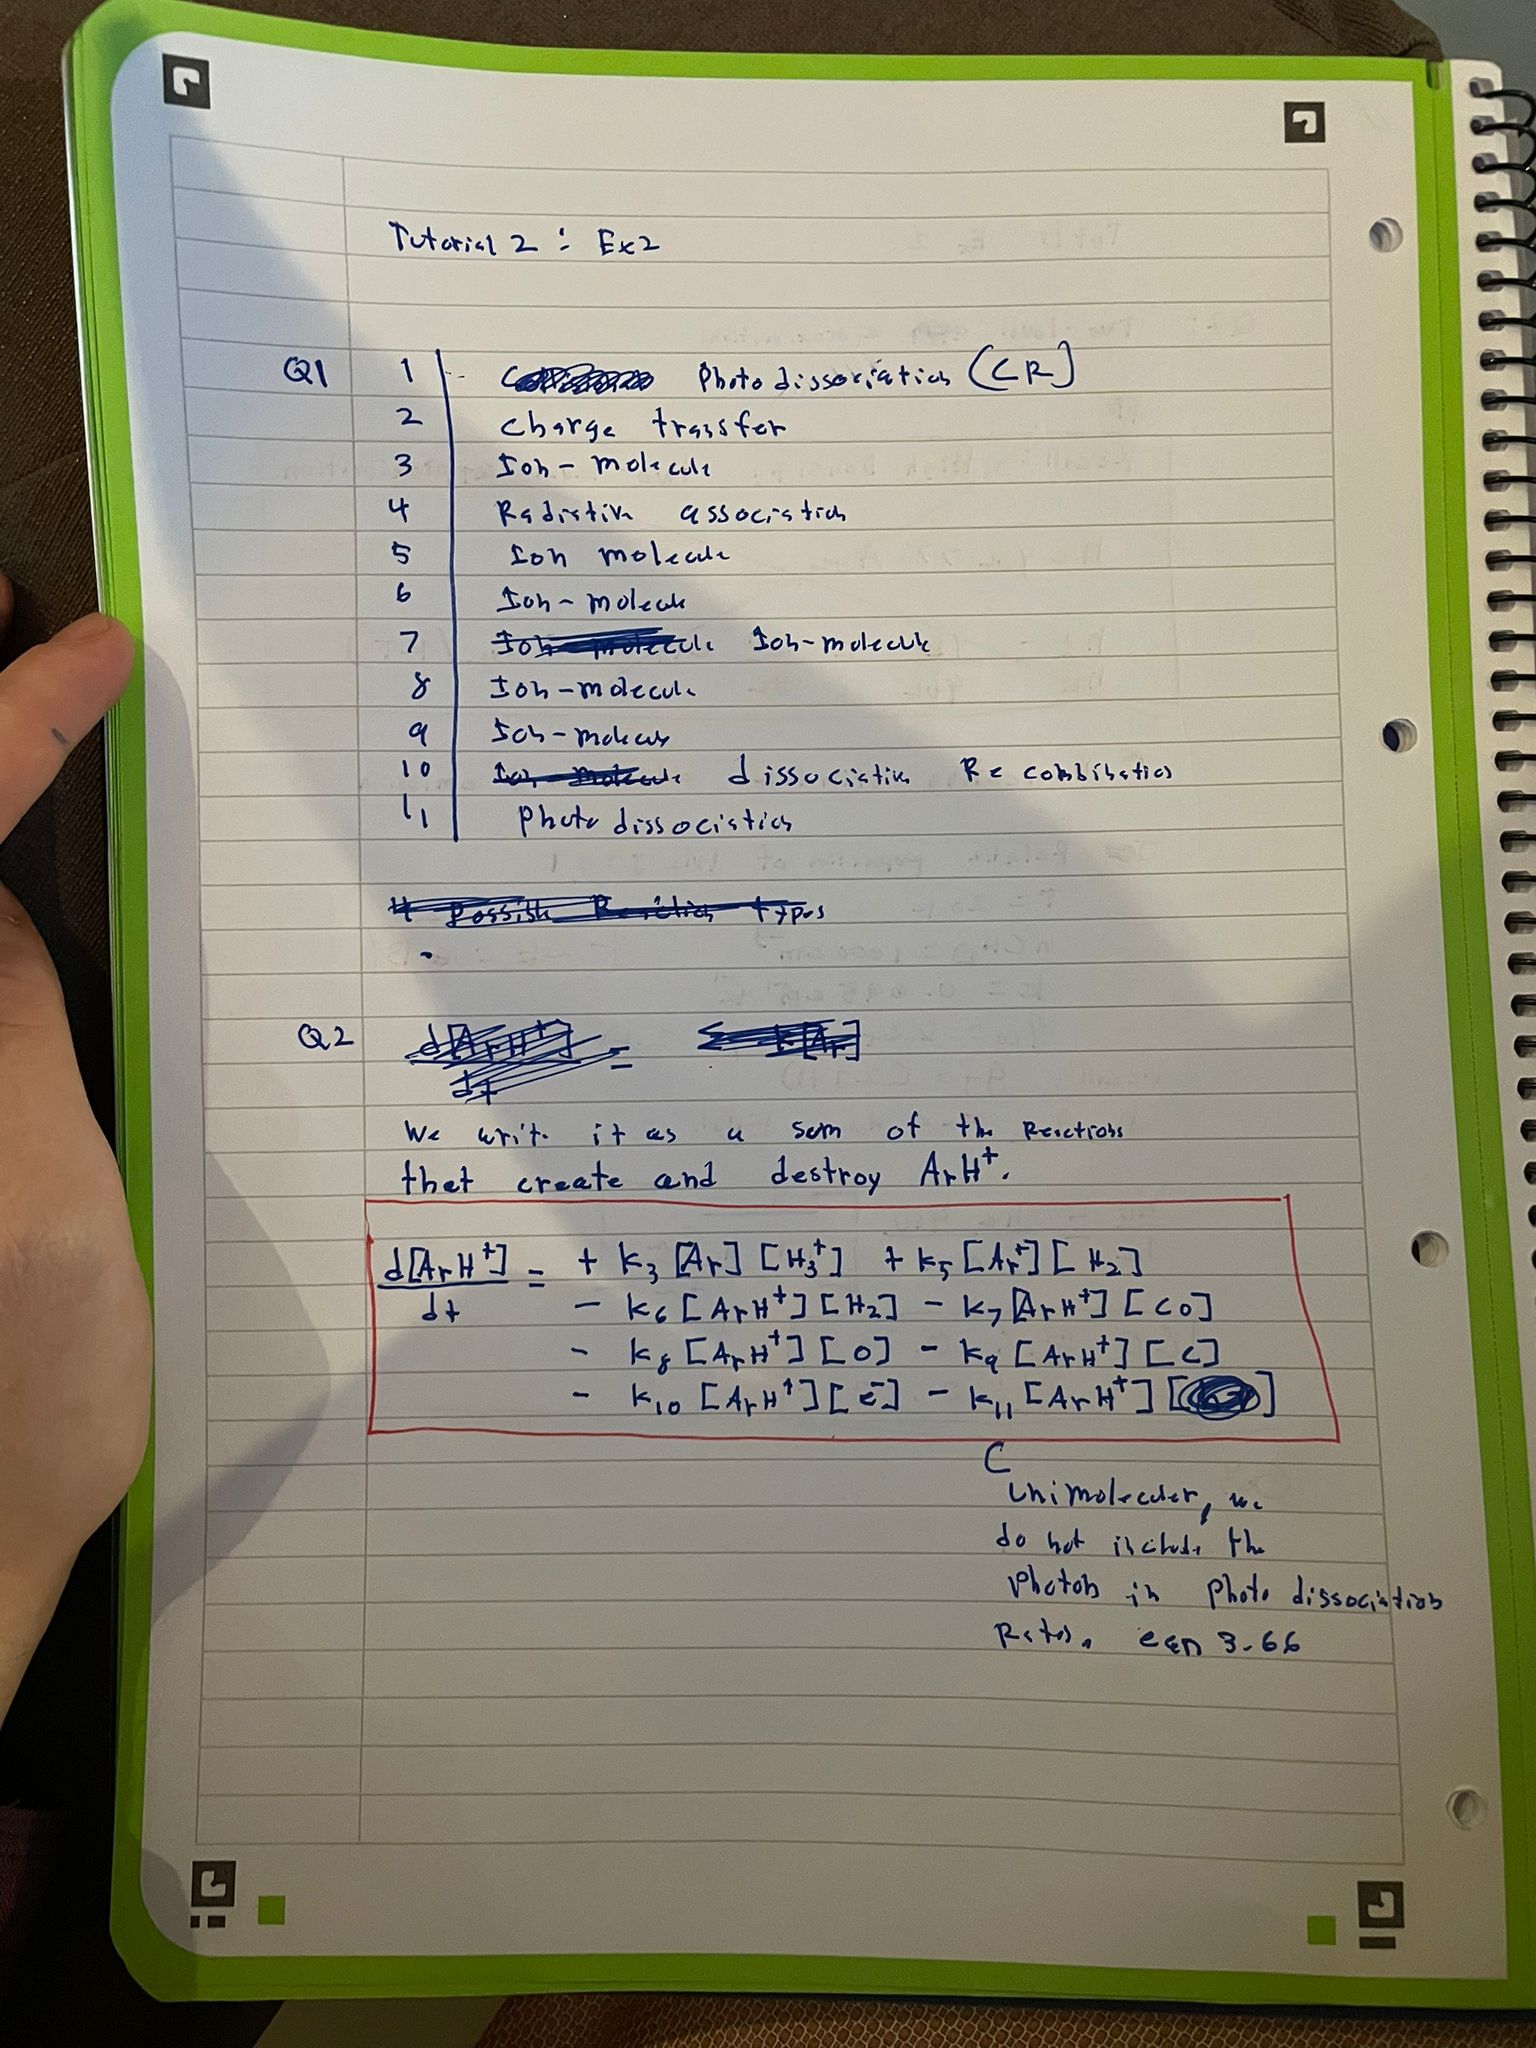 Tutorial 2 : Ex2
Q1 1 Photo dissociation (CR)
2 charge transfer
3 Ion - molecule
4 Radiative association
5 Ion molecule
6 Ion - molecule
7 Ion-molecule Ion-molecule
8 Ion-molecule
9 Ion-molecule
10 Ion-molecule dissociative Recombination
11 Photo dissociation
# Possible Reaction types
Q2 d[ArH⁺]/dt = [Ar]
We write it as a sum of the Reactions
that create and destroy ArH⁺.
d[ArH⁺]/dt = + k₃ [Ar] [H₃⁺] + k₅ [Ar⁺] [H₂]
- k₆ [ArH⁺] [H₂] - k₇ [ArH⁺] [CO]
- k₈ [ArH⁺] [O] - k₉ [ArH⁺] [C]
- k₁₀ [ArH⁺] [e⁻] - k₁₁ [ArH⁺] [ ]
Unimolecular, we
do not include the
photon in photo dissociation
Rates. eqn 3.66